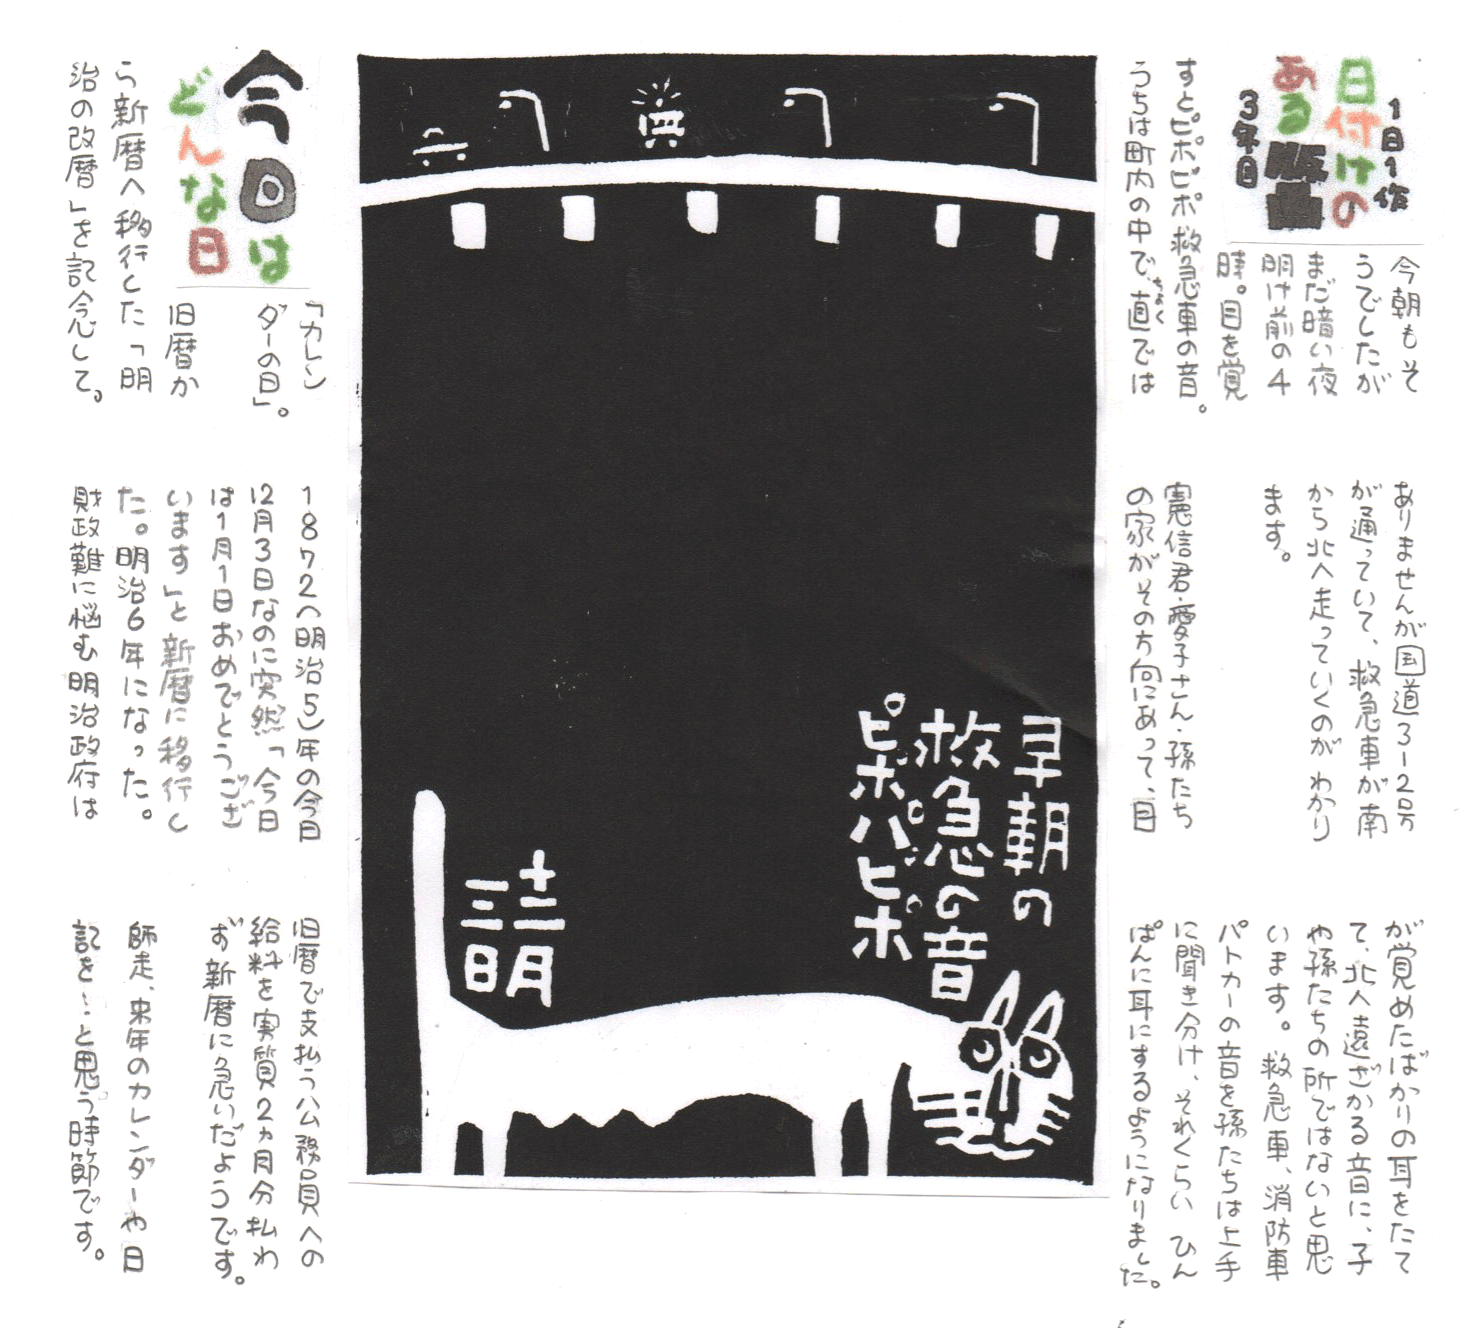 1日1作
日付けの
ある版画
3年目
今朝もそ
うでしたが
まだ暗い夜
明け前の4
時。目を覚
すとピポピポ救急車の音。
うちは町内の中で、直では
ちょく
ありませんが国道312号
が通っていて、救急車が南
から北へ走っていくのがわかり
ます。
憲信君・愛子さん・孫たち
の家がその方向にあって、目
が覚めたばかりの耳をたて
て、北へ遠ざかる音に、子
や孫たちの所ではないと思
います。救急車、消防車
パトカーの音を孫たちは上手
に聞き分け、それくらいひん
ぱんに耳にするようになりました。
早朝の
救急の音
ピポパピポ
十二月
三日
今日は
どんな日
「カレン
ダーの日」。
旧暦か
ら新暦へ移行した「明
治の改暦」を記念して。
1872(明治5)年の今日
12月3日なのに突然「今日
は1月1日おめでとうござ
います」と新暦に移行し
た。明治6年になった。
財政難に悩む明治政府は
旧暦で支払う公務員への
給料を実質2ヵ月分払わ
ず新暦に急いだようです。
師走、来年のカレンダーや日
記を…と思う時節です。